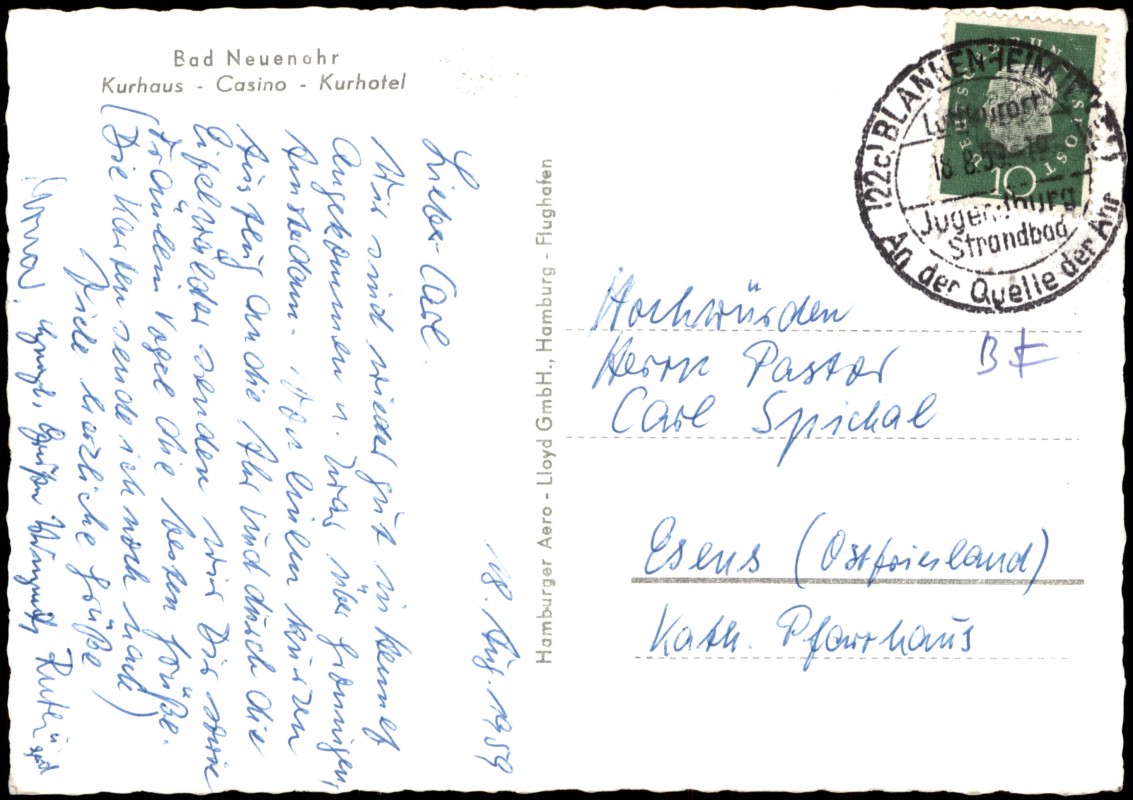 Bad Neuenahr
Kurhaus - Casino - Kurhotel
18. Aug. 1959
Lieber Carl.
Wir sind wieder gut in
angekommen u. zwar über Groningen,
Amsterdam. Von einem kurzen
Ausflug an die Ahr und durch die
Eifelwälder senden wir Dir sowie
Fräulein Vogel die besten Grüße.
(Die Karten sende ich noch nach)
Viele herzliche Grüße
Grüßen
Hamburger Aero - Lloyd GmbH., Hamburg - Flughafen
DEUTSCHE BUNDESPOST
10
(22c) BLANKENHEIM (AHR)
Luftkurort
18.8.59-19
Jugendburg
Strandbad
An der Quelle der Ahr
Hochwürden
Herrn Pastor
Carl Spichal
Esens (Ostfriesland)
Kath. Pfarrhaus